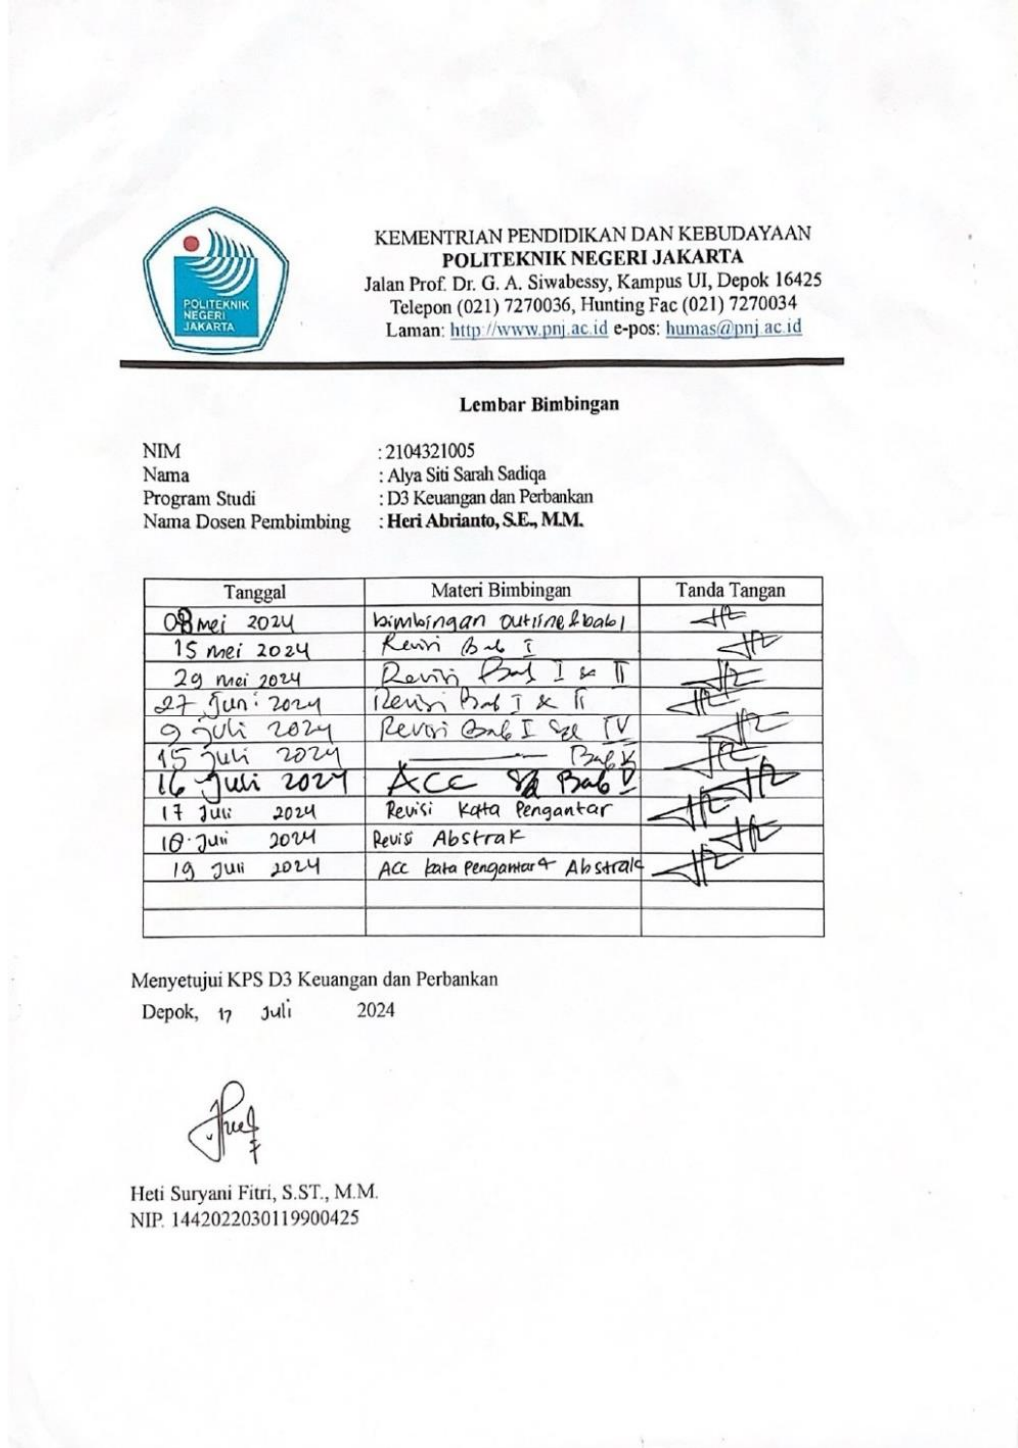 POLITEKNIK
NEGERI
JAKARTA
KEMENTRIAN PENDIDIKAN DAN KEBUDAYAAN
POLITEKNIK NEGERI JAKARTA
Jalan Prof. Dr. G. A. Siwabessy, Kampus UI, Depok 16425
Telepon (021) 7270036, Hunting Fac (021) 7270034
Laman: http://www.pnj.ac.id e-pos: humas@pnj.ac.id
Lembar Bimbingan
NIM : 2104321005
Nama : Alya Siti Sarah Sadiqa
Program Studi : D3 Keuangan dan Perbankan
Nama Dosen Pembimbing : Heri Abrianto, S.E., M.M.
Tanggal Materi Bimbingan Tanda Tangan
08 mei 2024 bimbingan outline & bab 1
15 mei 2024 Revisi Bab I
29 mei 2024 Revisi Bab I & II
27 Juni 2024 Revisi Bab I & II
9 juli 2024 Revisi Bab I sd IV
15 juli 2024 Bab V
16 Juli 2024 ACC sd Bab V
17 Juli 2024 Revisi Kata Pengantar
18 Juli 2024 Revisi Abstrak
19 Juli 2024 ACC kata Pengantar & Abstrak
Menyetujui KPS D3 Keuangan dan Perbankan
Depok, 17 Juli 2024
Heti Suryani Fitri, S.ST., M.M.
NIP. 1442022030119900425